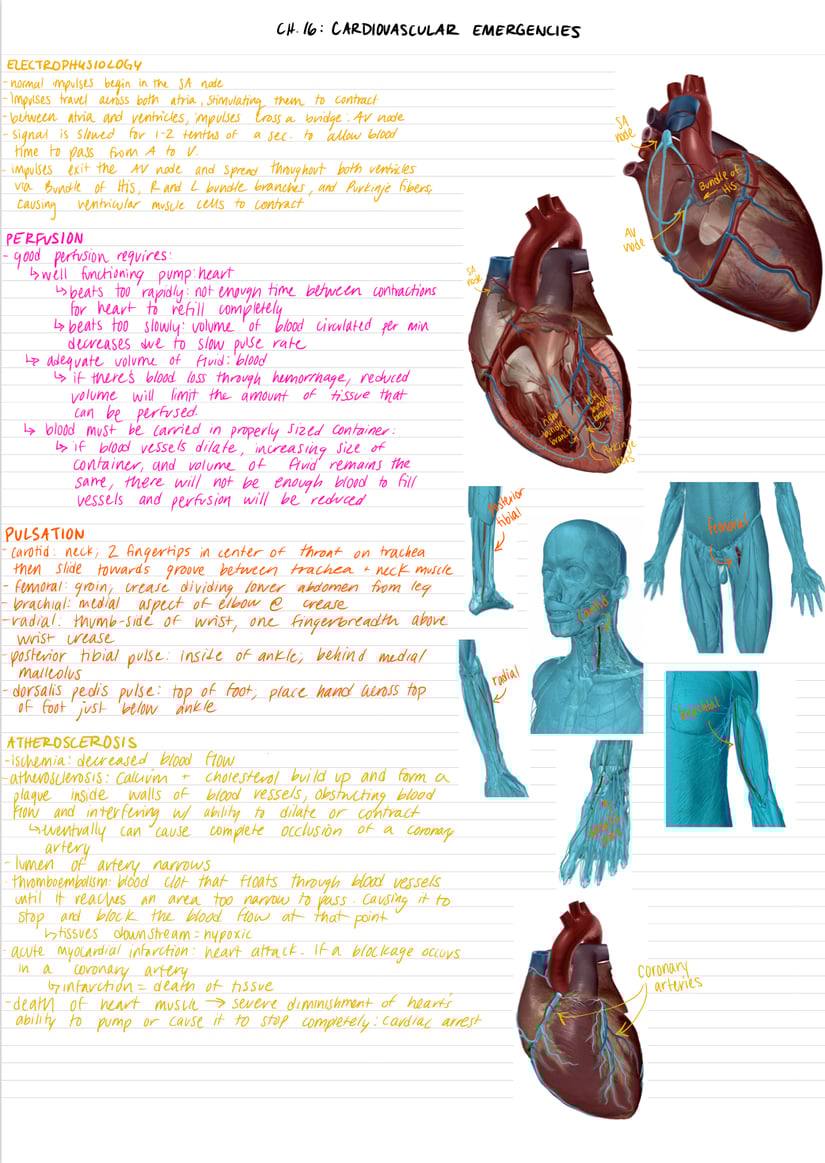 CH. 16: CARDIOVASCULAR EMERGENCIES
ELECTROPHYSIOLOGY
- normal impulses begin in the SA node
- Impulses travel across both atria, stimulating them to contract
- between atria and ventricles, impulses cross a bridge: AV node
- signal is slowed for 1-2 tenths of a sec. to allow blood
time to pass from A to V.
- impulses exit the AV node and spread throughout both ventricles
via Bundle of His, R and L bundle branches, and Purkinje fibers,
causing ventricular muscle cells to contract
SA
node
Bundle of
His
AV
node
PERFUSION
- good perfusion requires:
↳ well functioning pump: heart
↳ beats too rapidly: not enough time between contractions
for heart to refill completely
↳ beats too slowly: volume of blood circulated per min
decreases due to slow pulse rate
↳ adequate volume of fluid: blood
↳ if there's blood loss through hemorrhage, reduced
volume will limit the amount of tissue that
can be perfused.
↳ blood must be carried in properly sized container:
↳ if blood vessels dilate, increasing size of
container, and volume of fluid remains the
same, there will not be enough blood to fill
vessels and perfusion will be reduced
SA
node
right
bundle
branch
left
bundle
branch
Purkinje
fibers
PULSATION
- carotid: neck; 2 fingertips in center of throat on trachea
then slide towards groove between trachea + neck muscle
- femoral: groin, crease dividing lower abdomen from leg
- brachial: medial aspect of elbow @ crease
- radial: thumb-side of wrist, one fingerbreadth above
wrist crease
- posterior tibial pulse: inside of ankle; behind medial
malleolus
- dorsalis pedis pulse: top of foot; place hand across top
of foot just below ankle
posterior
tibial
carotid
femoral
radial
brachial
ATHEROSCEROSIS
- ischemia: decreased blood flow
- atherosclerosis: calcium + cholesterol build up and form a
plaque inside walls of blood vessels, obstructing blood
flow and interfering w/ ability to dilate or contract
↳ eventually can cause complete occlusion of a coronary
artery
- lumen of artery narrows
- thromboembolism: blood clot that floats through blood vessels
until it reaches an area too narrow to pass. Causing it to
stop and block the blood flow at that point
↳ tissues downstream = hypoxic
- acute myocardial infarction: heart attack. If a blockage occurs
in a coronary artery
↳ infarction = death of tissue
- death of heart muscle → severe diminishment of heart's
ability to pump or cause it to stop completely: cardiac arrest
coronary
arteries